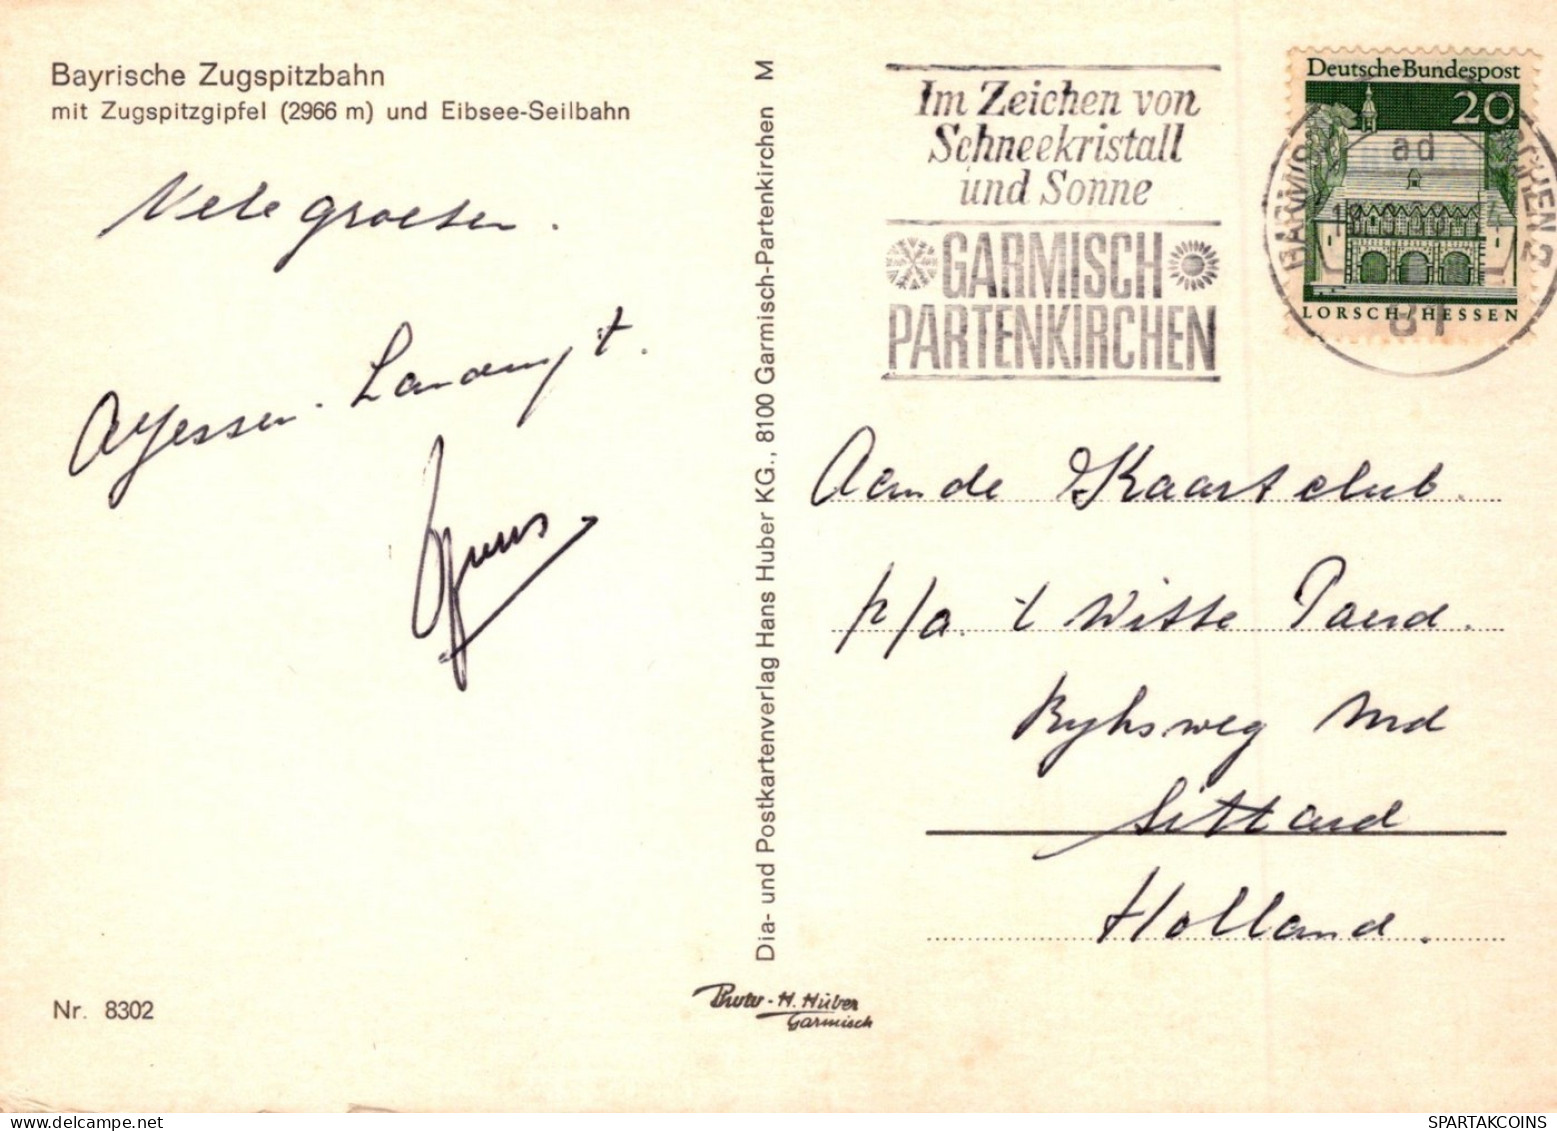 Bayrische Zugspitzbahn
mit Zugspitzgipfel (2966 m) und Eibsee-Seilbahn
Vele groeten.
Dia- und Postkartenverlag Hans Huber KG., 8100 Garmisch-Partenkirchen M
Im Zeichen von
Schneekristall
und Sonne
GARMISCH
PARTENKIRCHEN
Deutsche Bundespost
20
ad
LORSCH/HESSEN
81
Aan de Kaartclub.
p/a. 't Witte Paard.
Ryksweg Nrd
Sittard
Holland.
Nr. 8302
Photo-H. Huber
Garmisch
SPARTAKCOINS